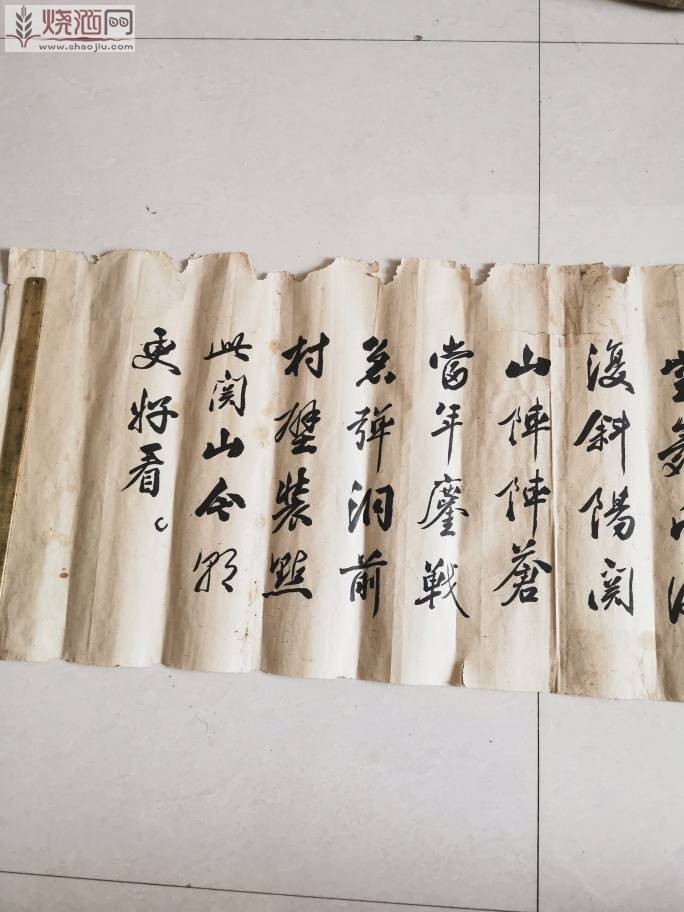 烧酒网
www.shaojiu.com
當舞雨後
復斜陽関
山陣陣蒼
當年鏖戰
急弹洞前
村壁装點
此関山今朝
更好看。